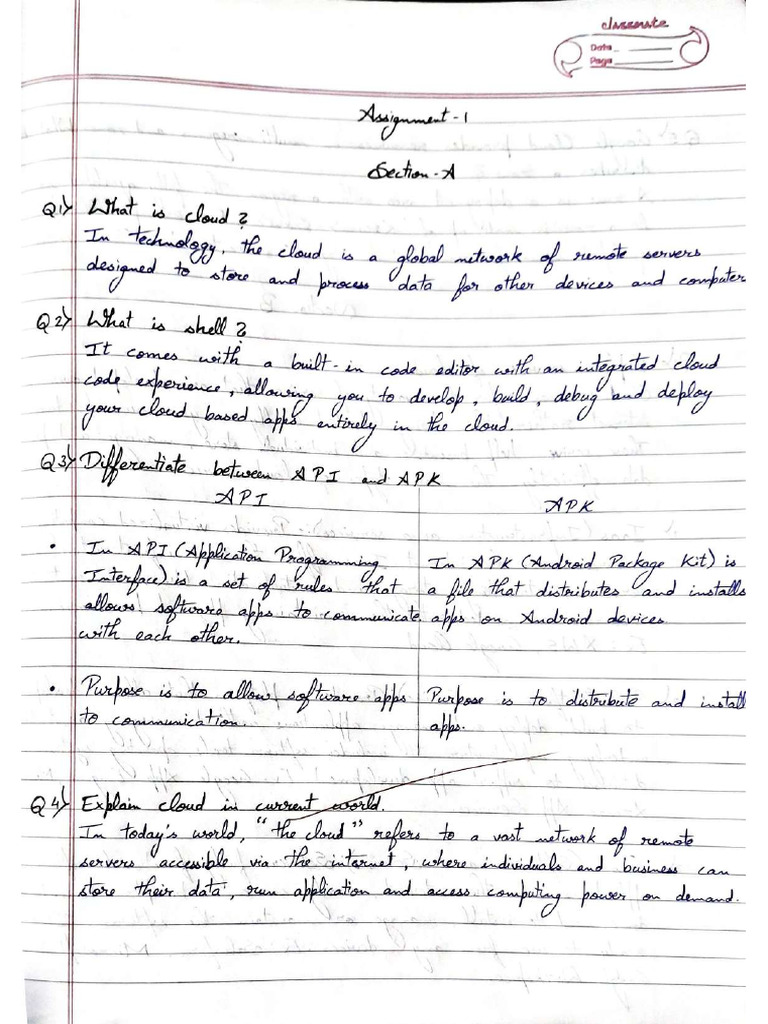 classmate
Date
Page
Assignment - 1
Section - A
Q1) What is cloud?
In technology, the cloud is a global network of remote servers
designed to store and process data for other devices and computer
Q2) What is shell?
It comes with a built-in code editor with an integrated cloud
code experience, allowing you to develop, build, debug and deploy
your cloud based apps entirely in the cloud.
Q3) Differentiate between API and APK
API APK
• In API (Application Programming In APK (Android Package Kit) is
Interface) is a set of rules that a file that distributes and installs
allows software apps to communicate apps on Android devices
with each other.
• Purpose is to allow software apps Purpose is to distribute and install
to communication. apps.
Q4) Explain cloud in current world.
In today's world, "the cloud" refers to a vast network of remote
servers accessible via the internet, where individuals and business can
store their data, run application and access computing power on demand.